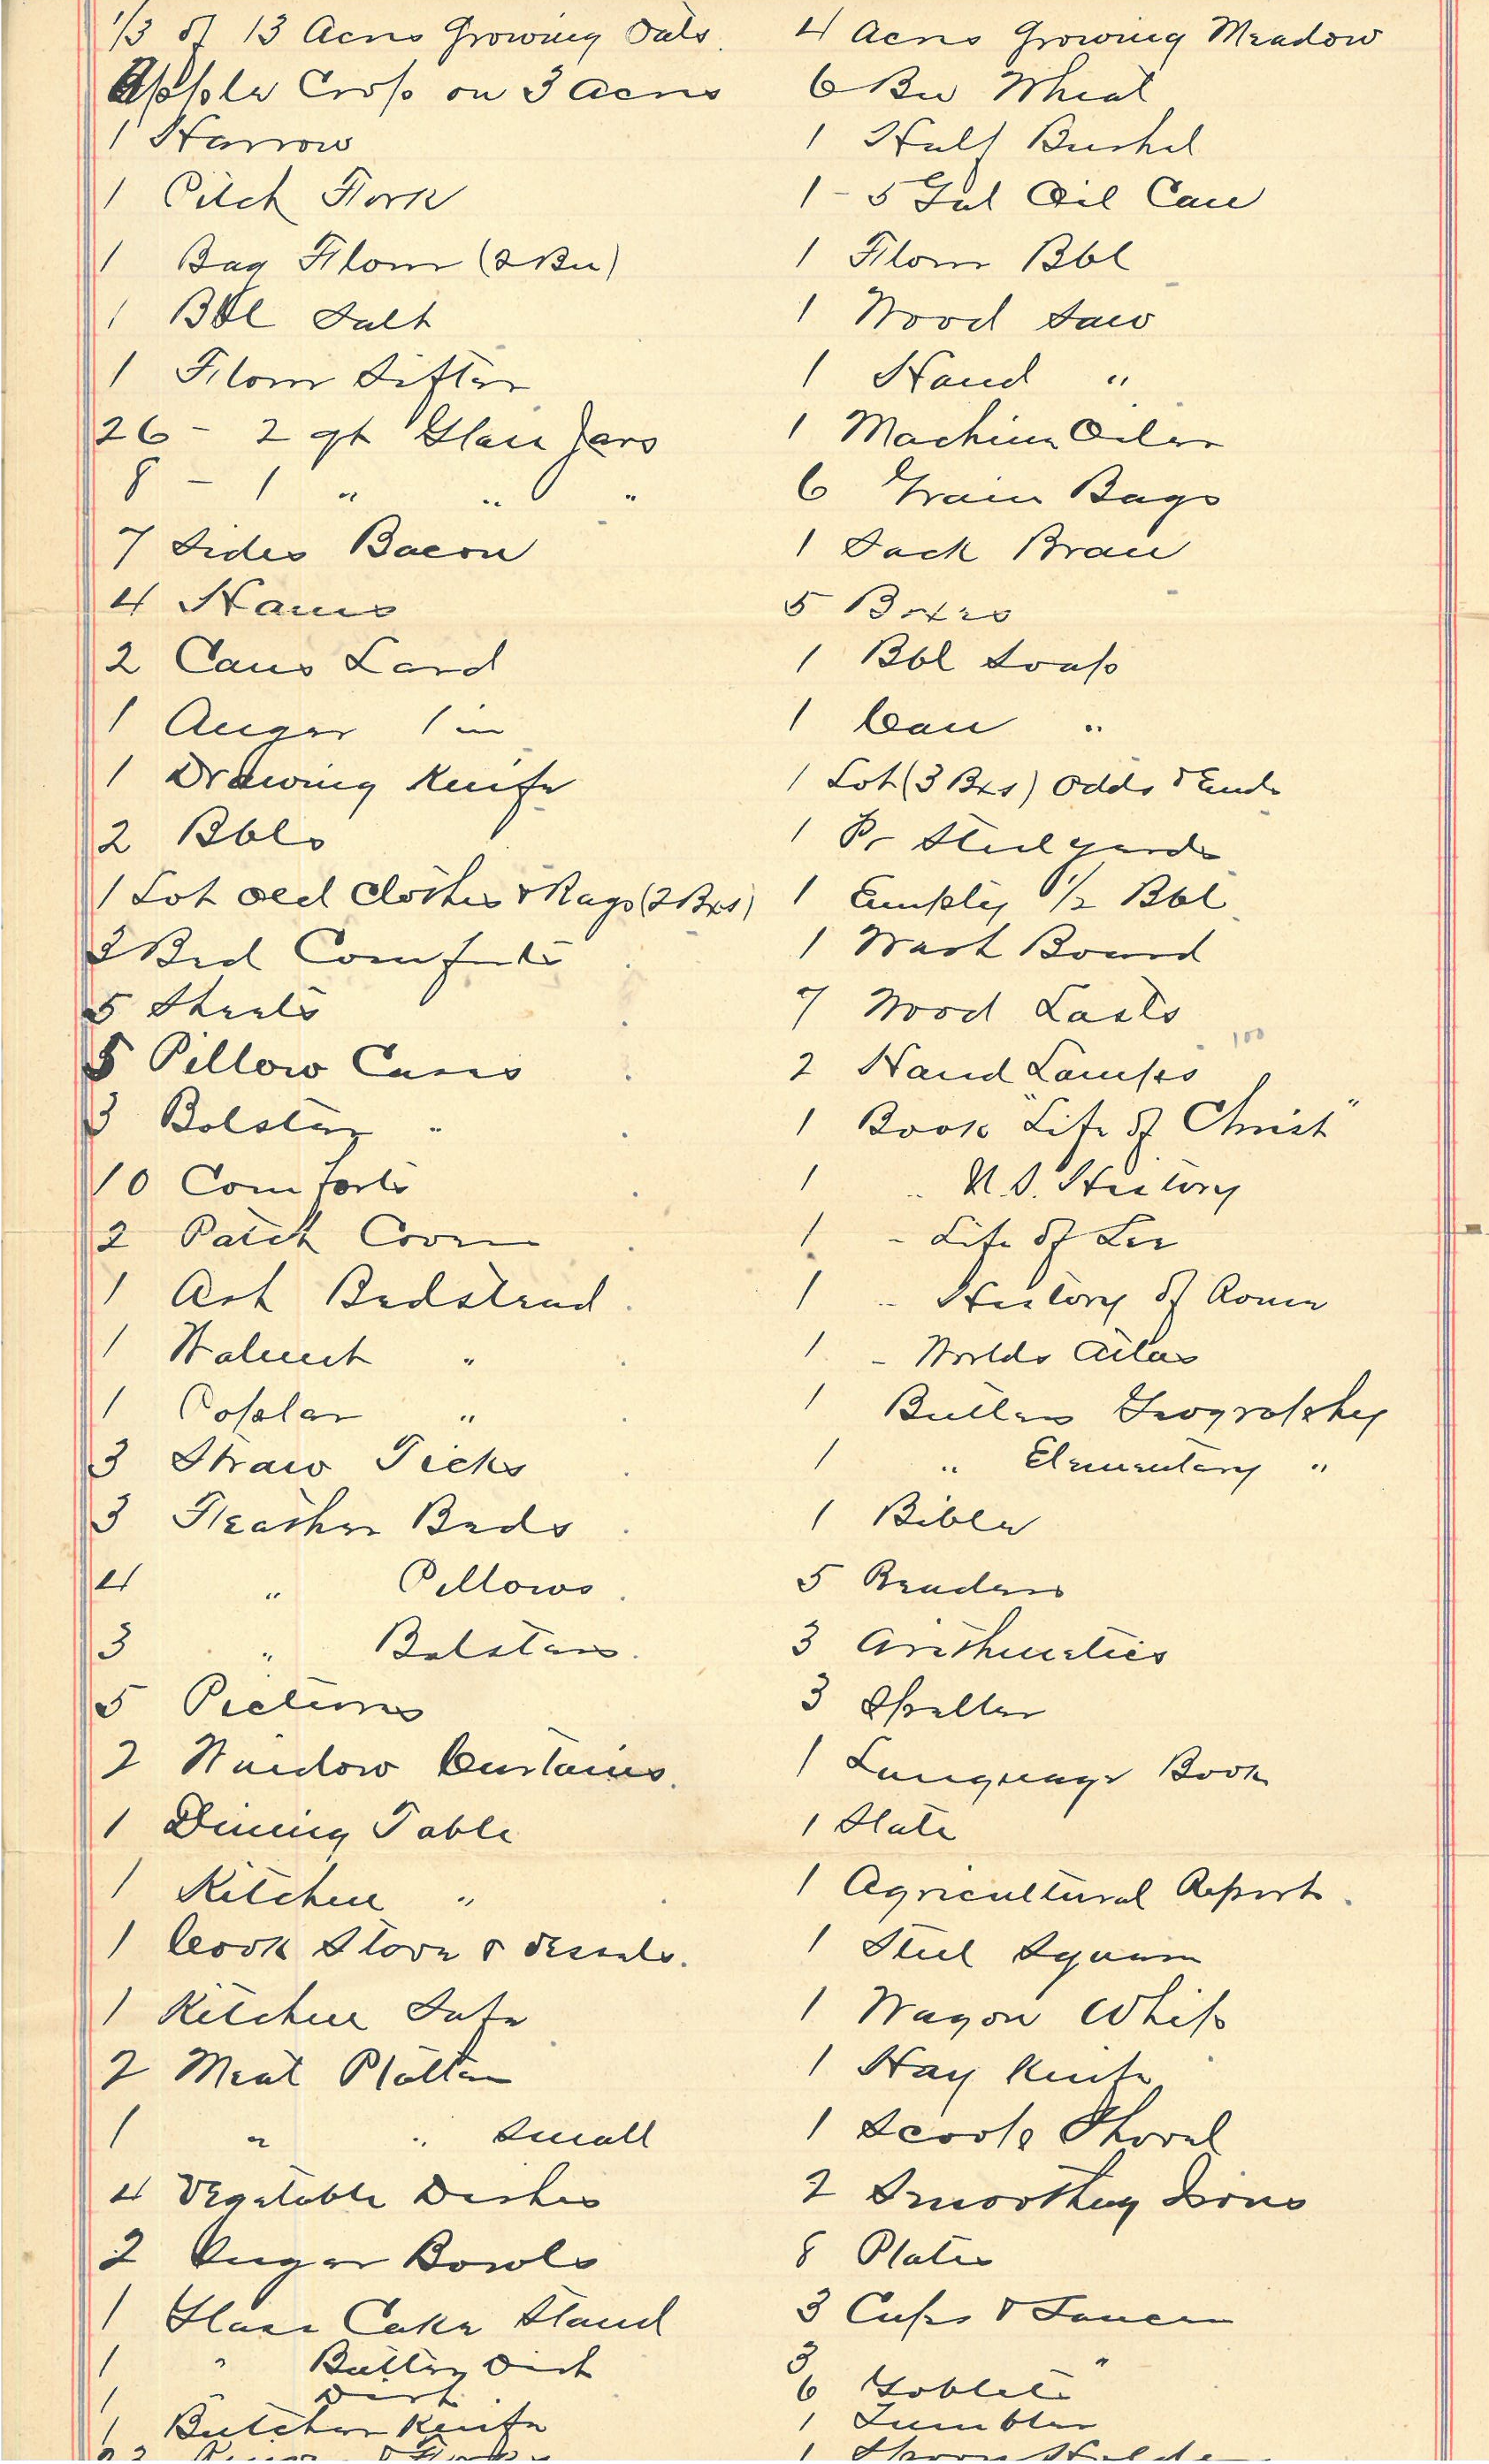 1/3 of 13 Acres Growing Oats.
Apple Crop on 3 Acres
1 Harrow
1 Pitch Fork
1 Bag Flour (2 Bu)
1 Bbl Salt
1 Flour Sifter
26 - 2 qt Glass Jars
8 - 1 " " "
7 Sides Bacon
4 Hams
2 Cans Lard
1 Auger 1 in
1 Drawing Knife
2 Bbls
1 Lot old Clothes & Rags (2 Bxs)
2 Bed Comforts
5 Sheets
5 Pillow Cases
3 Bolster "
10 Comforts
2 Patch Covers
1 Ash Bedstead
1 Walnut "
1 Poplar "
3 Straw Ticks
3 Feather Beds
4 " Pillows
3 " Bolsters.
5 Pictures
2 Window Curtains.
1 Dining Table
1 Kitchen "
1 Cook Stove & vessels.
1 Kitchen Safe
2 Meat Platters
1 " " Small
4 Vegetable Dishes
2 Sugar Bowls
1 Glass Cake Stand
1 " Butter Dish
1 " Dish
1 Butcher Knife
4 Acres Growing Meadow
6 Bu Wheat
1 Half Bushel
1 - 5 Gal Oil Can
1 Flour Bbl
1 Wood Saw
1 Hand "
1 Machine Oiler
6 Grain Bags
1 Sack Bran
5 Boxes
1 Bbl Soap
1 Can "
1 Lot (3 Bxs) Odds & Ends
1 Pr Steelyards
1 Empty 1/2 Bbl
1 Wash Board
7 Wood Lasts
100
2 Hand Lamps
1 Book "Life of Christ"
1 " U.S. History
1 " Life of Lee
1 " History of Rome
1 " Worlds Atlas
1 Butlers Geography
1 " Elementary "
1 Bible
5 Readers
3 Arithmetics
3 Speller
1 Language Book
1 Slate
1 Agricultural Report.
1 Steel Square
1 Wagon Whip
1 Hay Knife
1 Scoop Shovel
2 Smoothing Irons
8 Plates
3 Cups & Saucers
3 "
6 Goblets
1 Tumbler
1 Spoon Holder